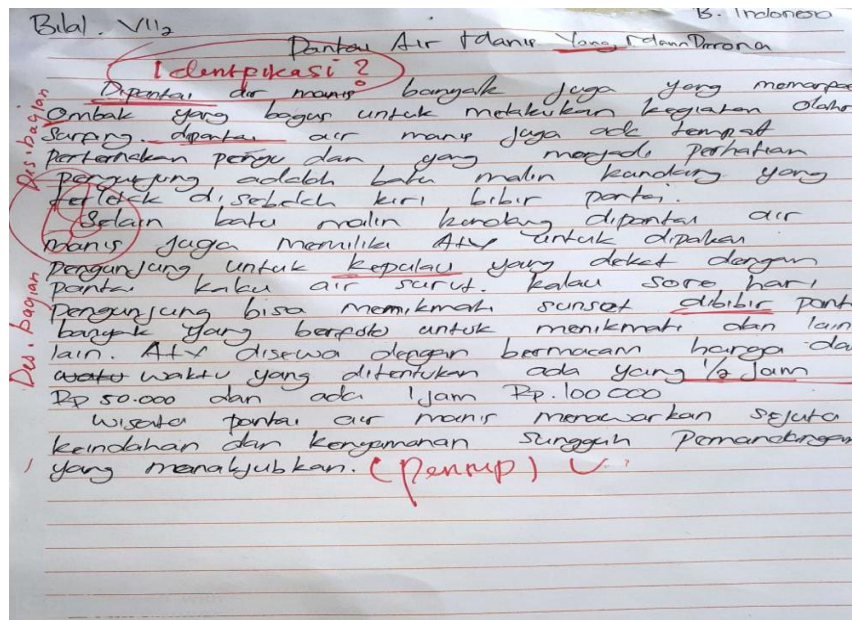 Bilal. VII2
B. Indoneso
Pantai Air Manis Yang
Identipikasi?
Dipantai air manis banyak juga yang
Ombak yang bagus untuk melakukan kegiatan olahr
Surping. dipantai air manis juga ada tempat
Perternakan penyu dan yang menjadi perhatian
pengunjung adalah batu malin kundang yang
terletak disebelah kiri bibir pantai.
Selain batu malin kundang dipantai air
manis juga memiliki ATV untuk dipakai
Pengunjung untuk kepulau yang deket dengan
pantai kalau air surut. kalau sore hari
pengunjung bisa menikmati sunset dibibir pant
banyak yang berpoto untuk menikmati dan lain
lain. ATV disewa dengan bermacam harga da
waktu yang ditentukan ada yang 1/2 Jam
Rp 50.000 dan ada 1 jam Rp. 100 000
Wisata pantai air manis menawarkan sejuta
keindahan dan kenyamanan sungguh Pemandangan
yang menakjubkan. (penutup)
Des. bagian
Des. bagian